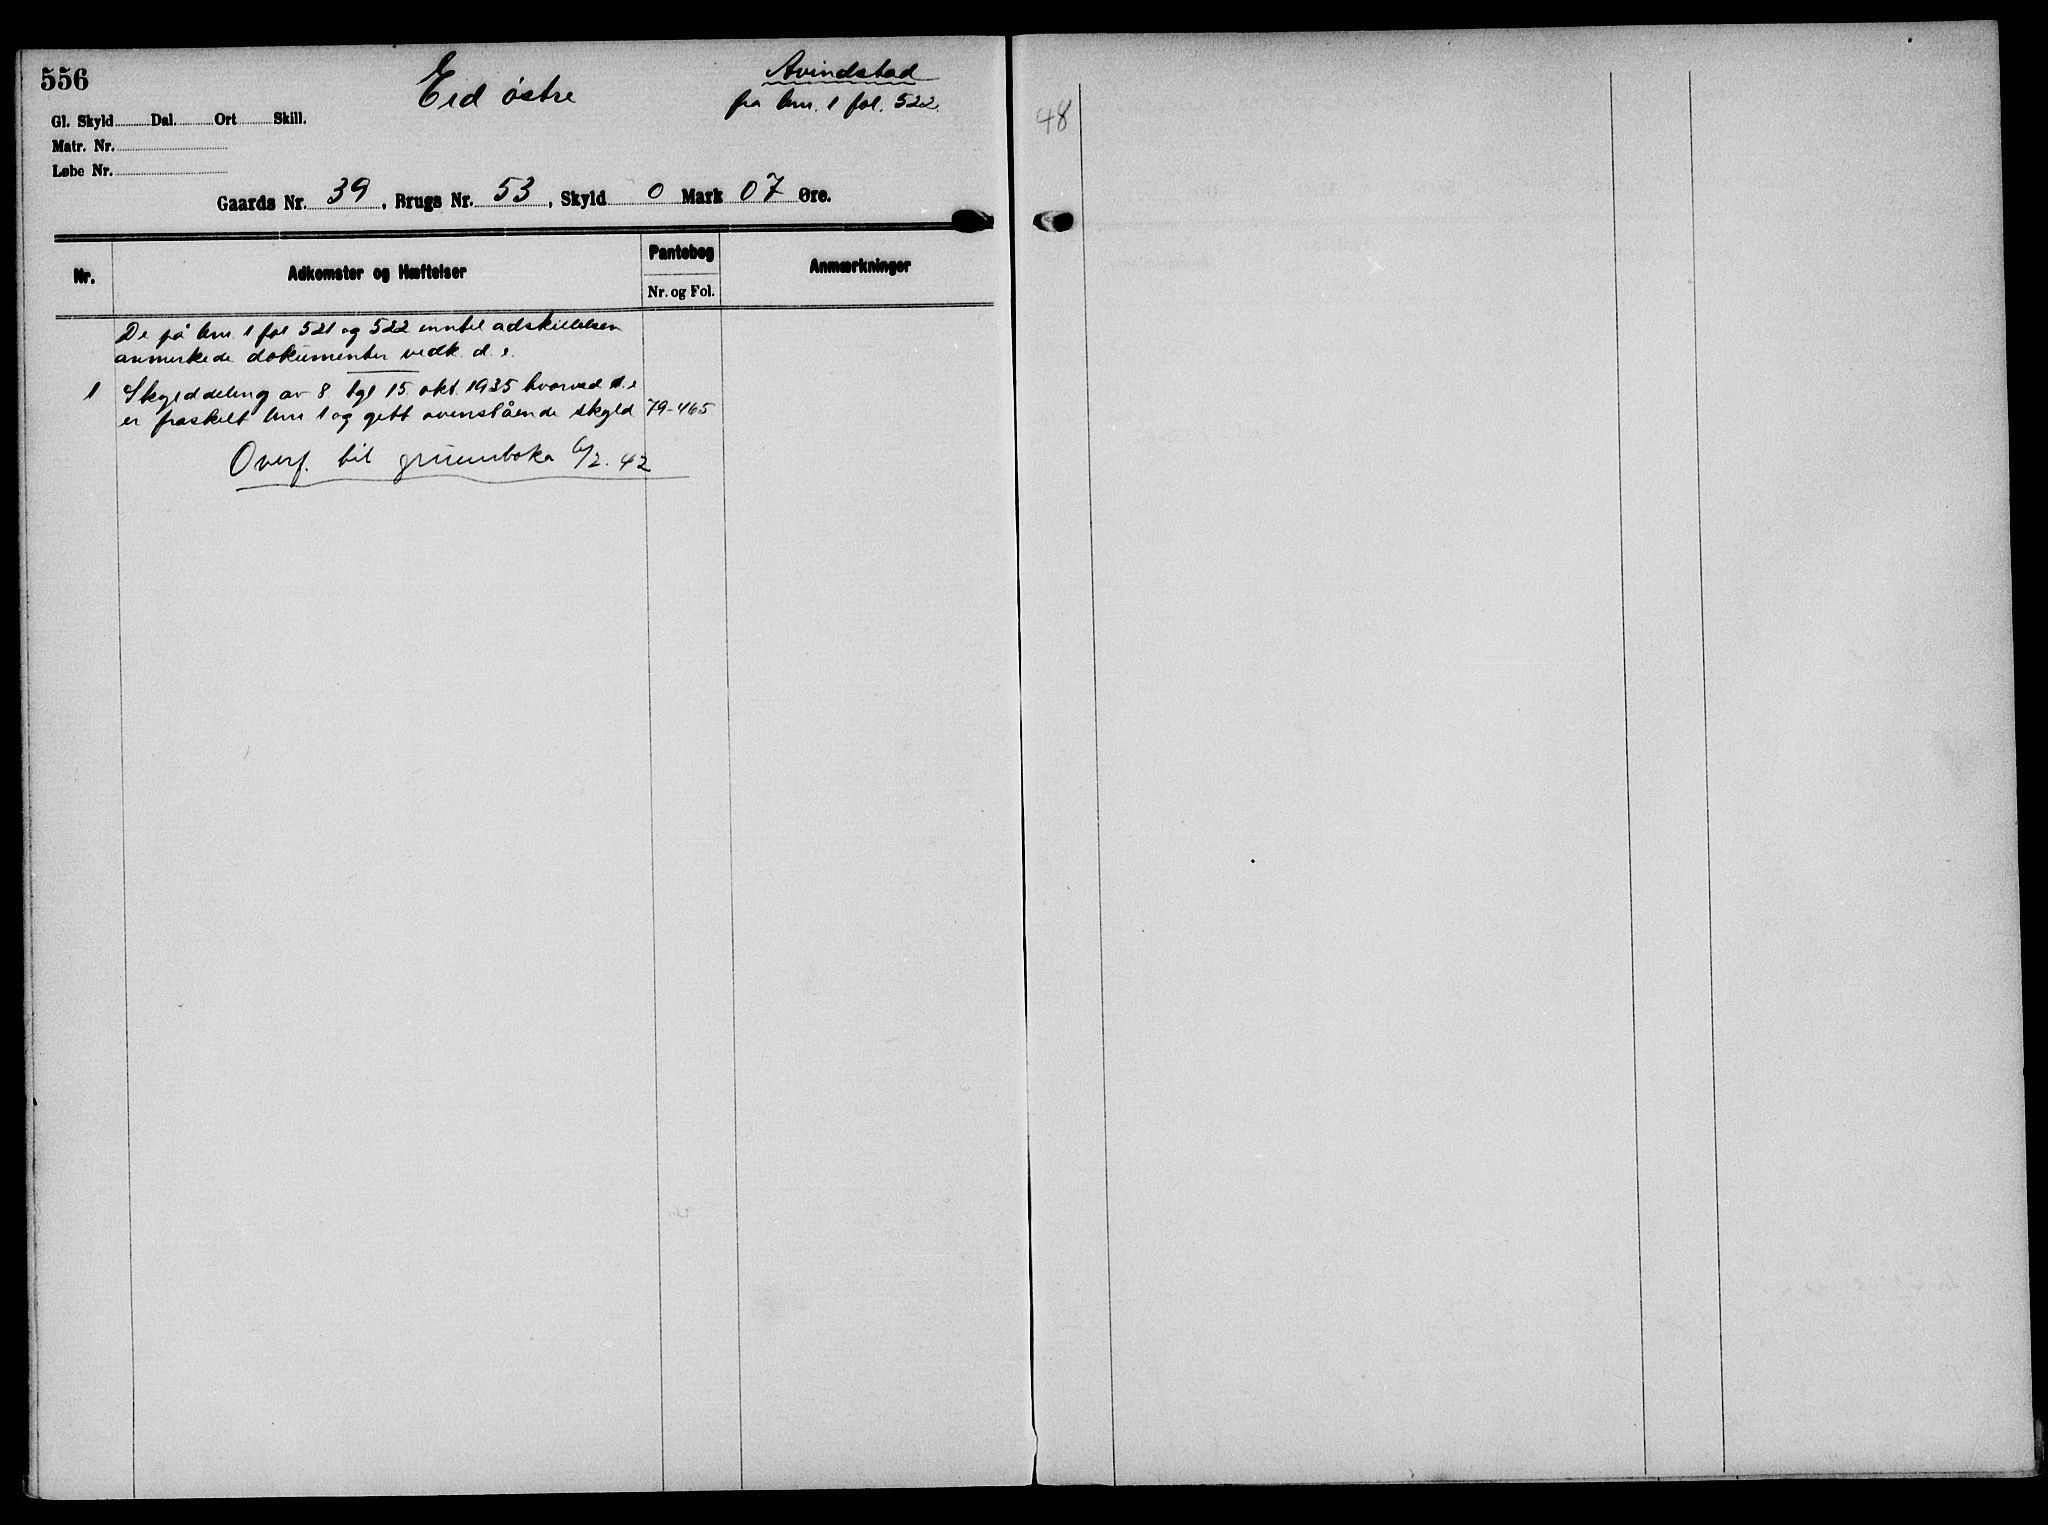 556
Eid østre
Avindstad
fra bnr. 1 fol. 522
Gl. Skyld Dal. Ort Skill.
Matr. Nr.
Løbe Nr.
Gaards Nr. 39, Brugs Nr. 53, Skyld 0 Mark 07 Øre.
Nr.
Adkomster og Hæftelser
Pantebog
Nr. og Fol.
Anmærkninger
De på bnr. 1 fol 521 og 522 inntil adskillelsen
anmerkede dokumenter vedk. d. e.
1 Skylddeling av 8 tgl 15. okt. 1935 hvorved d. e
er fraskilt bnr 1 og gitt ovenstående skyld 79-465
Overf. til grunnboka 6/2. 42
48